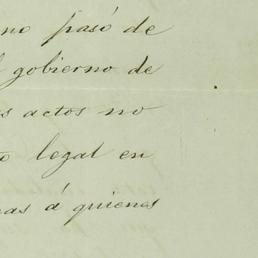 no pasó de
gobierno de
s actos no
o legal en
nas á quienes